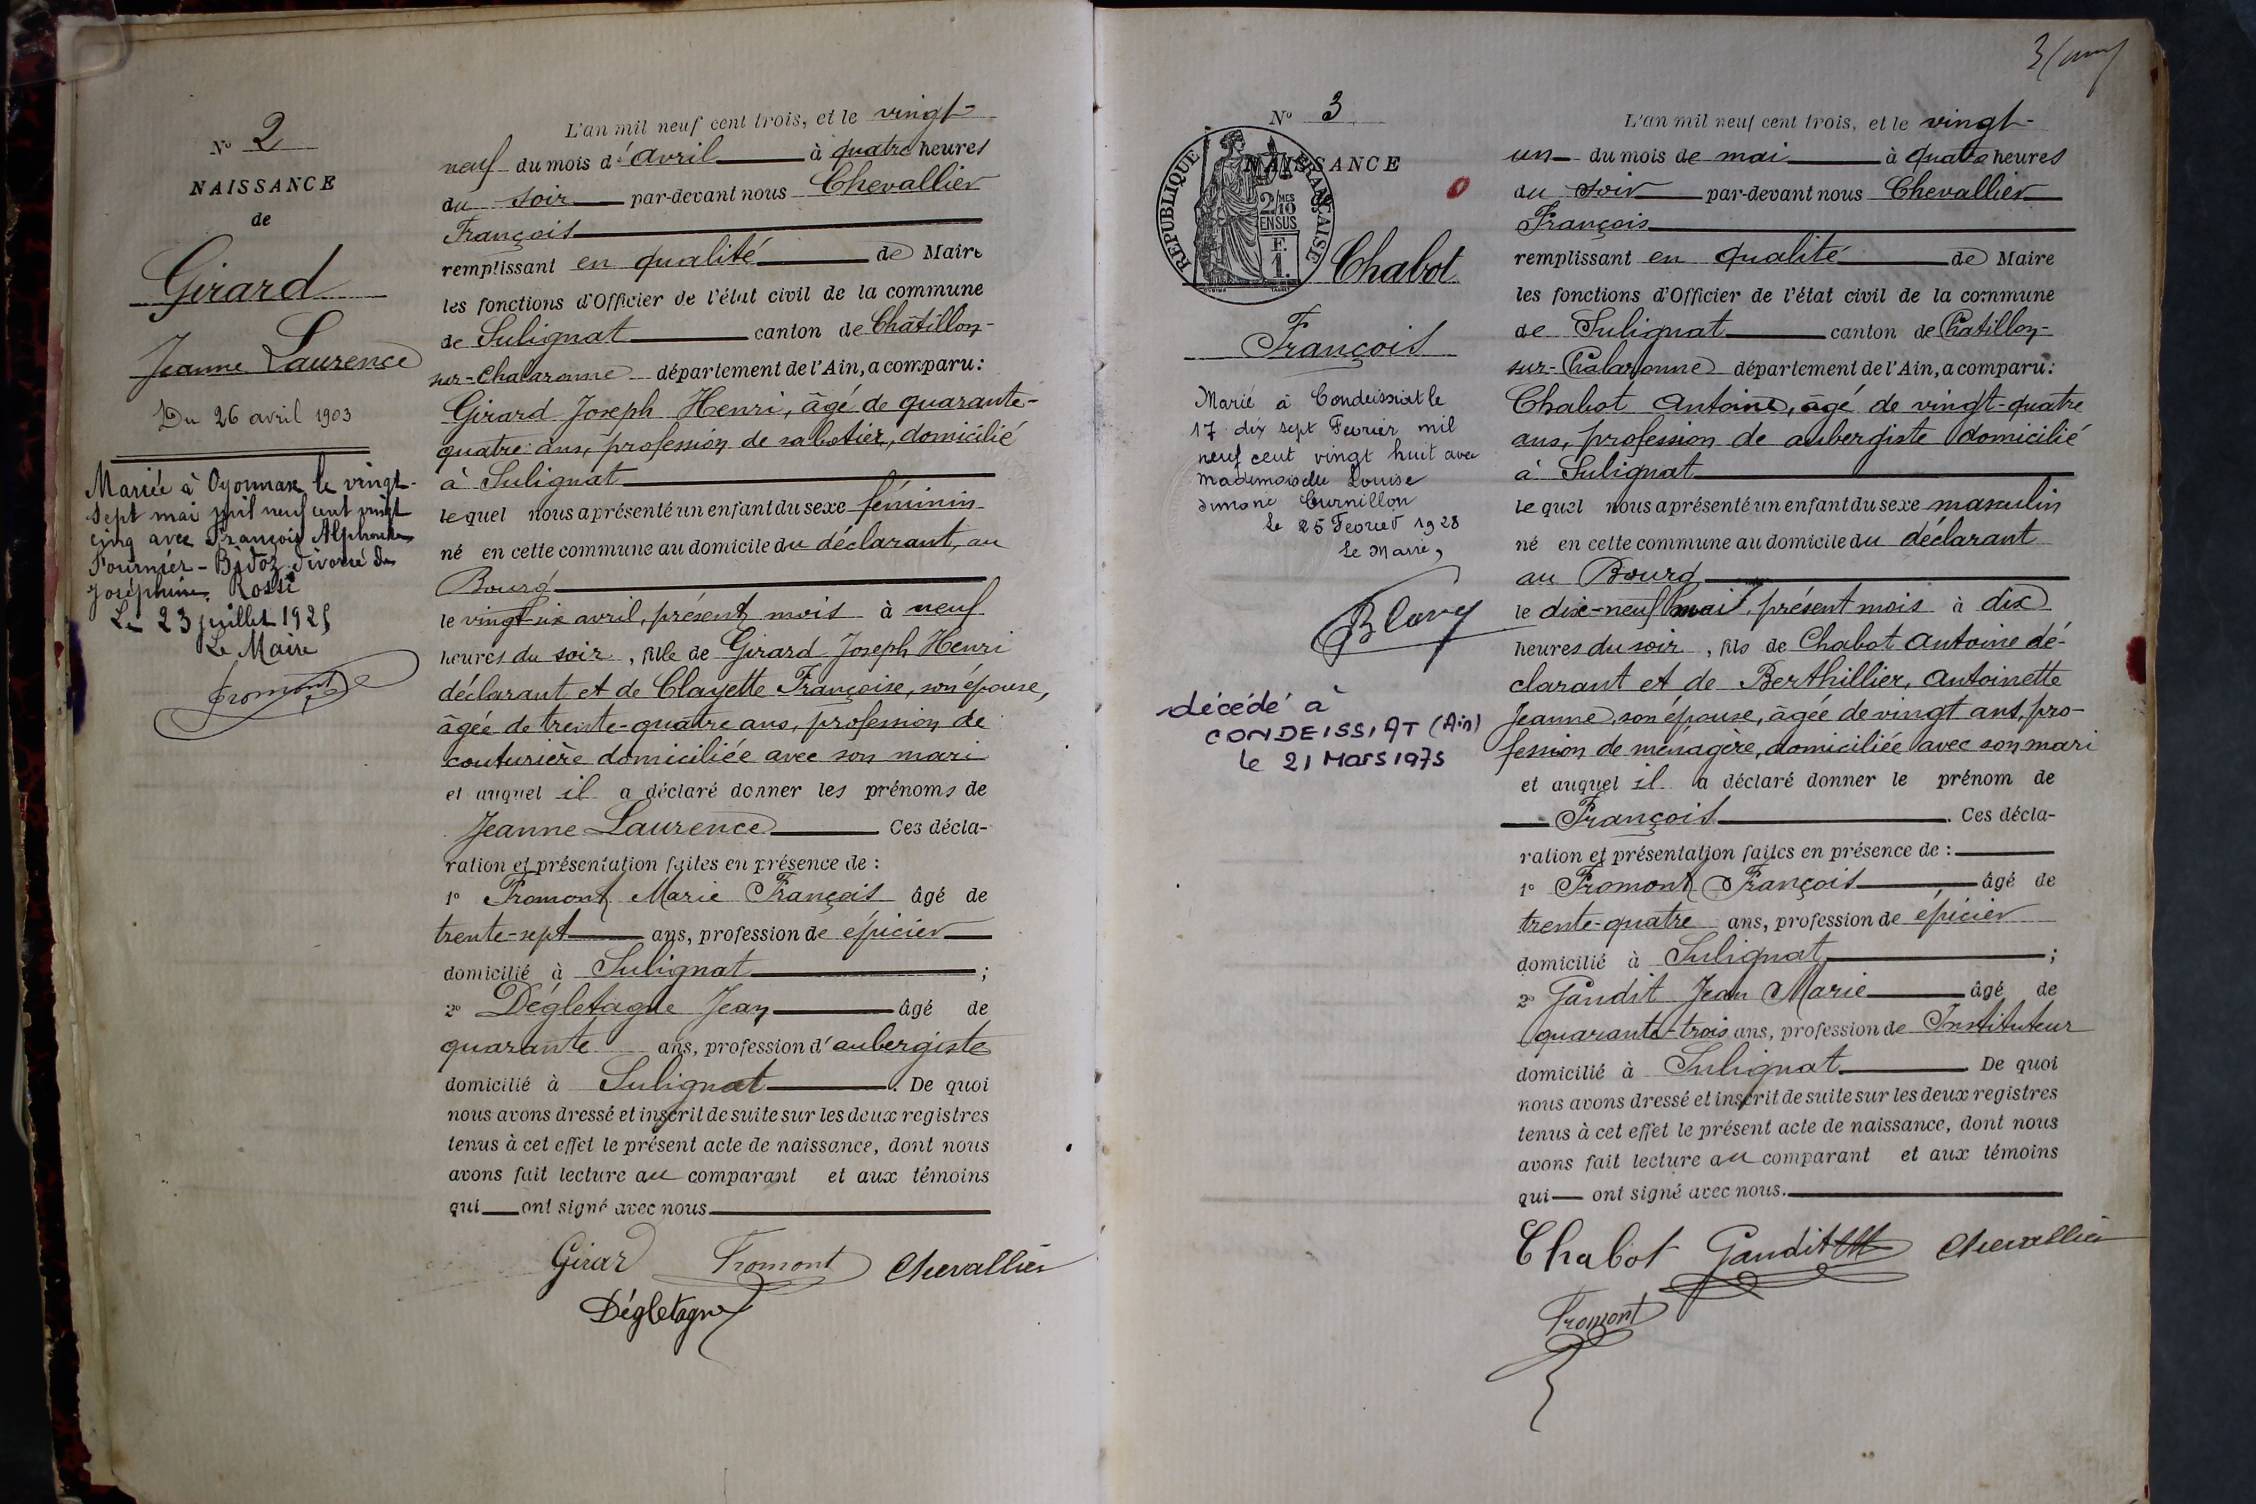 Nº 2
NAISSANCE
de
Girard
Jeanne Laurence
Du 26 avril 1903
Mariée à Oyonnax le vingt-
sept mai mil neuf cent vingt
cinq avec François Alphonse
Fournier-Bidoz divorcé de
Joséphine Rossi
Le 23 juillet 1925
Le Maire
Fromont
L'an mil neuf cent trois, et le vingt-
neuf du mois d'avril à quatre heures
du soir par-devant nous Chevallier
François
remplissant en qualité de Maire
les fonctions d'Officier de l'état civil de la commune
de Sulignat canton de Châtillon-
sur-Chalaronne département de l'Ain, a comparu :
Girard Joseph Henri, âgé de quarante-
quatre ans, profession de sabotier, domicilié
à Sulignat
lequel nous a présenté un enfant du sexe féminin
né en cette commune au domicile du déclarant, au
Bourg
le vingt-six avril, présent mois à neuf
heures du soir, fille de Girard Joseph Henri
déclarant et de Clayette Françoise, son épouse,
âgée de trente-quatre ans, profession de
couturière domiciliée avec son mari
et auquel il a déclaré donner les prénoms de
Jeanne Laurence Ces décla-
ration et présentation faites en présence de :
1º Fromont Marie François âgé de
trente-sept ans, profession de épicier
domicilié à Sulignat ;
2º Dégletagne Jean âgé de
quarante ans, profession d'aubergiste
domicilié à Sulignat. De quoi
nous avons dressé et inscrit de suite sur les deux registres
tenus à cet effet le présent acte de naissance, dont nous
avons fait lecture au comparant et aux témoins
qui ont signé avec nous
Girard Fromont Chevallier
Dégletagne
3
Nº 3
NAISSANCE
REPUBLIQUE FRANÇAISE
2/MES
10
EN SUS
F.
1.
Chabot
François
Marié à Condeissiat le
17 dix sept Fevrier mil
neuf cent vingt huit avec
mademoiselle Louise
Simone Curnillon
Le 25 Fevrier 1928
Le Maire,
Blavy
décédé à
CONDEISSIAT (Ain)
le 21 Mars 1975
L'an mil neuf cent trois, et le vingt-
un du mois de mai à quatre heures
du soir par-devant nous Chevallier
François
remplissant en qualité de Maire
les fonctions d'Officier de l'état civil de la commune
de Sulignat canton de Chatillon-
sur-Chalaronne département de l'Ain, a comparu :
Chabot Antoine, âgé de vingt-quatre
ans, profession de aubergiste domicilié
à Sulignat
lequel nous a présenté un enfant du sexe masculin
né en cette commune au domicile du déclarant
au Bourg
le dix-neuf mai, présent mois à dix
heures du soir, fils de Chabot Antoine dé-
clarant et de Berthillier, Antoinette
Jeanne, son épouse, âgée de vingt ans, pro-
fession de ménagère, domiciliée avec son mari
et auquel il a déclaré donner le prénom de
François. Ces décla-
ration et présentation faites en présence de :
1º Fromont François âgé de
trente-quatre ans, profession de épicier
domicilié à Sulignat ;
2º Gaudit Jean Marie âgé de
quarante-trois ans, profession de Instituteur
domicilié à Sulignat. De quoi
nous avons dressé et inscrit de suite sur les deux registres
tenus à cet effet le présent acte de naissance, dont nous
avons fait lecture au comparant et aux témoins
qui ont signé avec nous.
Chabot Gaudit Chevallier
Fromont